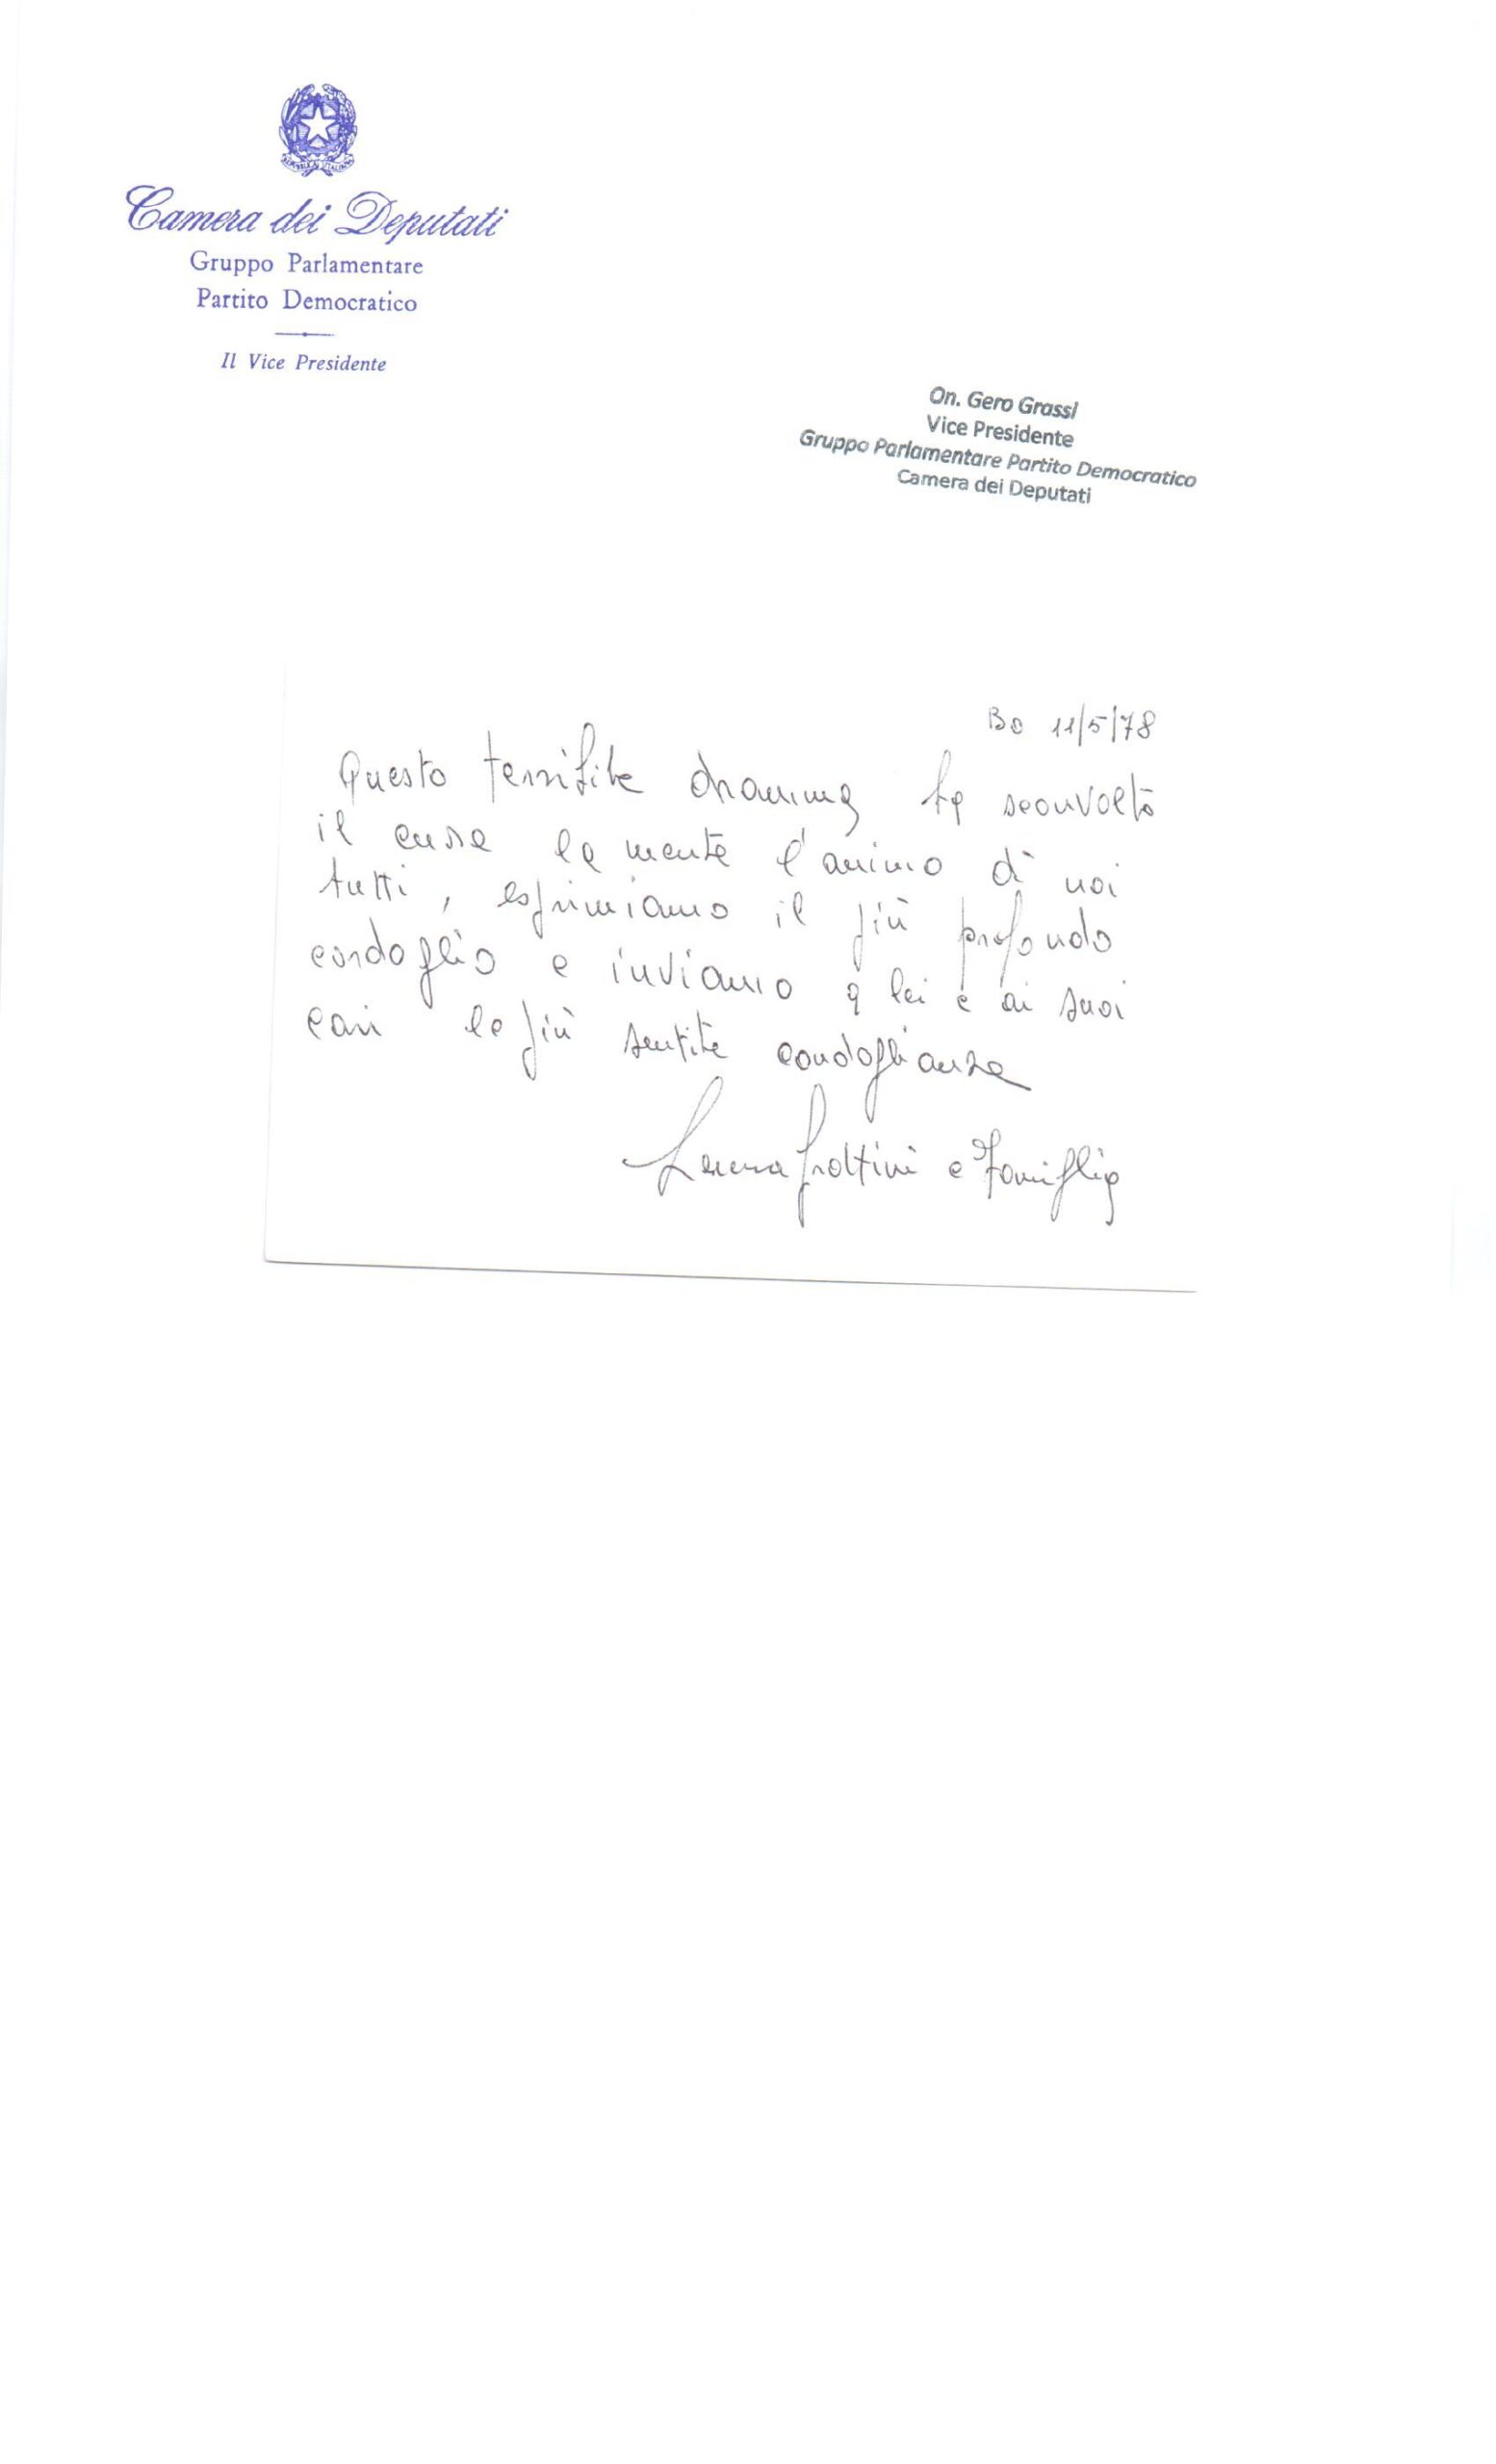 Camera dei Deputati
Gruppo Parlamentare
Partito Democratico
Il Vice Presidente
On. Gero Grassi
Vice Presidente
Gruppo Parlamentare Partito Democratico
Camera dei Deputati
Bo 11/5/78
Questo terribile dramma ha sconvolto
il cuore la mente l'animo di noi
tutti, esprimiamo il più profondo
cordoglio e inviamo a lei e ai suoi
cari le più sentite condoglianze
e Famiglia